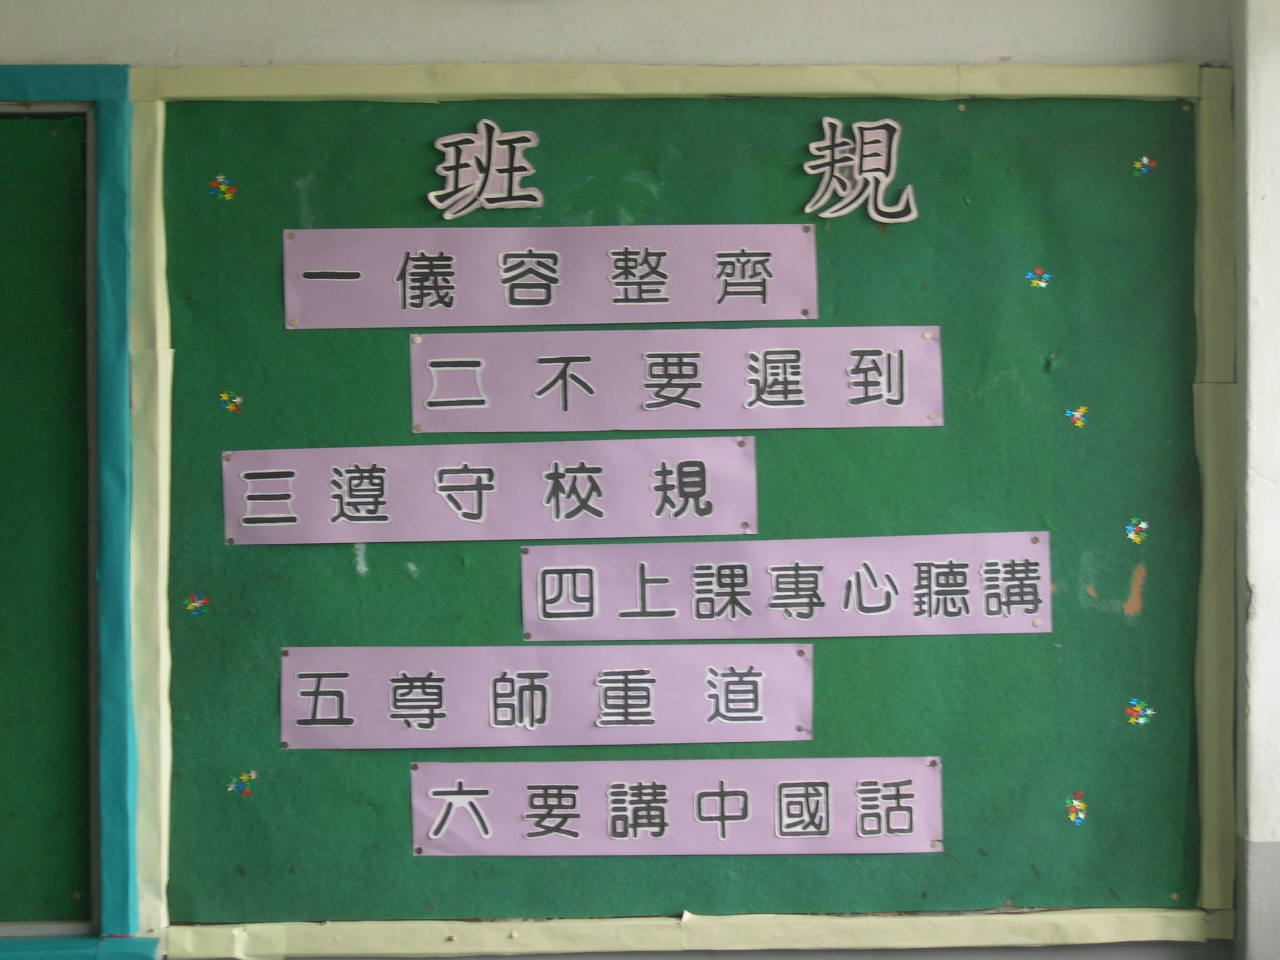 班規
一儀容整齊
二不要遲到
三遵守校規
四上課專心聽講
五尊師重道
六要講中國話